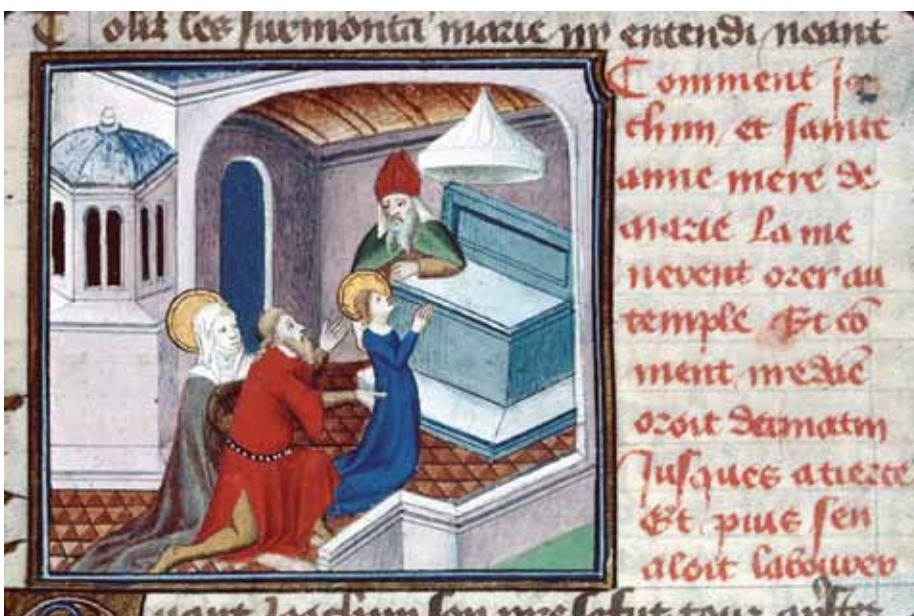 Tous les surmonta marie ny entendi neant
Comment Jo
chim et sainte
anne mere de
marie La me
nerent orer au
temple Et co
ment marie
oroit de matin
Jusques a tierce
Et puis sen
aloit labourer